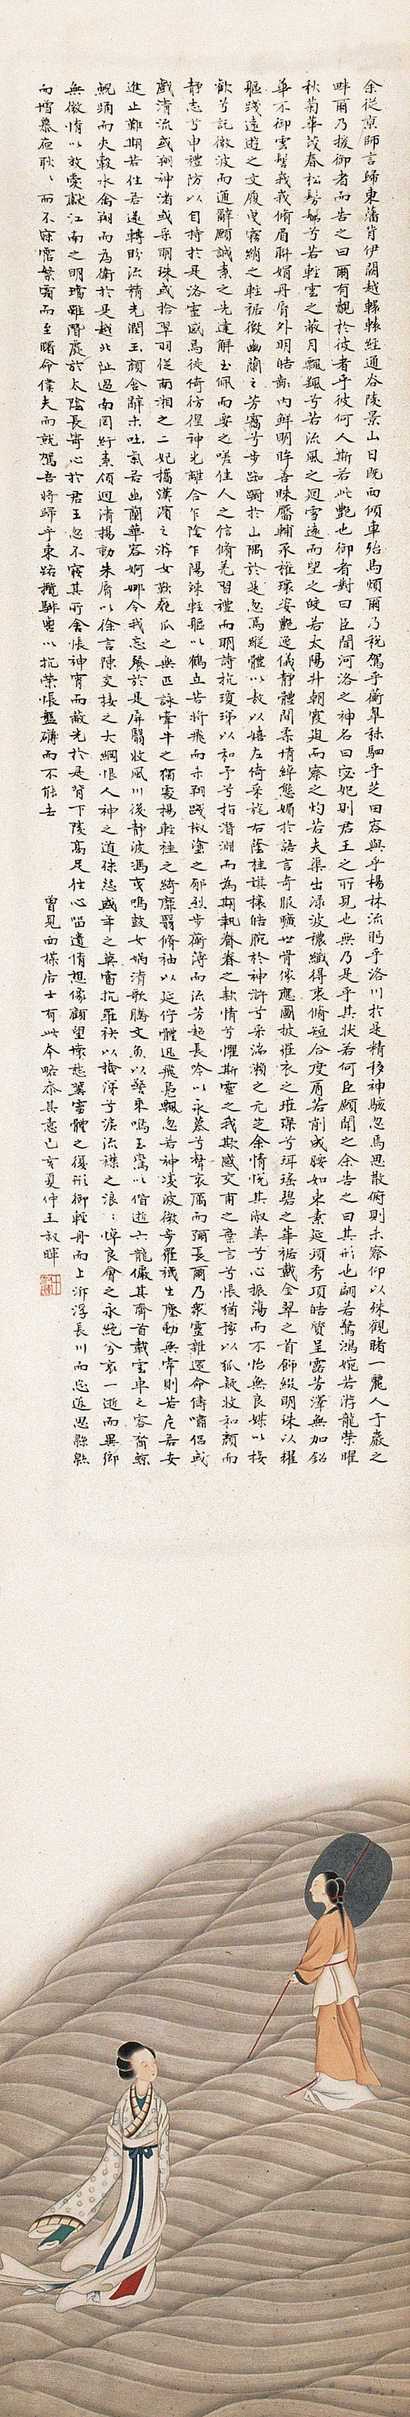 余從京師言歸東藩背伊闕越轘轅經通谷陵景山日既西傾車殆馬煩爾乃稅駕乎蘅皋秣駟乎芝田容與乎楊林流眄乎洛川於是精移神駭忽焉思散俯則未察仰以殊觀睹一麗人于巖之
畔爾乃援御者而告之曰爾有覿於彼者乎彼何人斯若此艷也御者對曰臣聞河洛之神名曰宓妃則君王之所見也無乃是乎其狀若何臣願聞之余告之曰其形也翩若驚鴻婉若游龍榮曜
秋菊華茂春松髣髴兮若輕雲之蔽月飄颻兮若流風之迴雪遠而望之皎若太陽升朝霞迫而察之灼若夫渠出淥波穠纖得衷脩短合度肩若削成腰如束素延頸秀項皓質呈露芳澤無加鉛
華不御雲髻峩峩脩眉聯娟丹脣外朗皓齒內鮮明眸善睞靨輔承權瓌姿艷逸儀靜體閑柔情綽態媚於語言奇服曠世骨像應圖披羅衣之璀璨兮珥瑤碧之華裾戴金翠之首飾綴明珠以耀
軀踐遠遊之文履曳霧綃之輕裾微幽蘭之芳藹兮步踟躕於山隅於是忽焉縱體以敖以嬉左倚采旄右蔭桂旗攘皓腕於神滸兮采湍瀨之元芝余情悅其淑美兮心振蕩而不怡無良媒以接
歡兮託微波而通辭願誠素之先達解玉佩而要之嗟佳人之信脩羌習禮而明詩抗瓊珶以和予兮指潛淵而為期執眷眷之款情兮懼斯靈之我欺感交甫之棄言兮悵猶豫以狐疑收和顏而
靜志兮申禮防以自持於是洛靈感焉徙倚彷徨神光離合乍陰乍陽竦輕軀以鶴立若將飛而未翔踐椒塗之郁烈步蘅薄而流芳超長吟以永慕兮聲哀厲而彌長爾乃眾靈雜遝命儔嘯侶或
戲清流或翔神渚或采明珠或拾翠羽從南湘之二妃攜漢濱之游女歎匏瓜之無匹詠牽牛之獨處揚輕袿之綺靡翳脩袖以延佇體迅飛鳧飄忽若神淩波微步羅襪生塵動無常則若危若安
進止難期若往若還轉眄流精光潤玉顏含辭未吐氣若幽蘭華容婀娜令我忘餐於是屏翳收風川後靜波馮夷鳴鼓女媧清歌騰文魚以警乘鳴玉鸞以偕逝六龍儼其齊首載雲車之容裔鯨
鯢踊而夾轂水禽翔而為衛於是越北沚過南岡紆素領迴清揚動朱脣以徐言陳交接之大綱恨人神之道殊怨盛年之莫當抗羅袂以掩涕兮淚流襟之浪浪悼良會之永絕兮哀一逝而異鄉
無微情以效愛獻江南之明璫雖潛處於太陰長寄心於君王忽不寤其所舍悵神宵而蔽光於是背下陵高足往心留遺情想像顧望懷愁冀靈體之復形御輕舟而上泝浮長川而忘返思緜緜
而增慕夜耿耿而不寐霑繁霜而至曙命僕夫而就駕吾將歸乎東路攬騑轡以抗策悵盤磚而不能去
曾見居士有此本略參其意己亥夏仲王叔暉